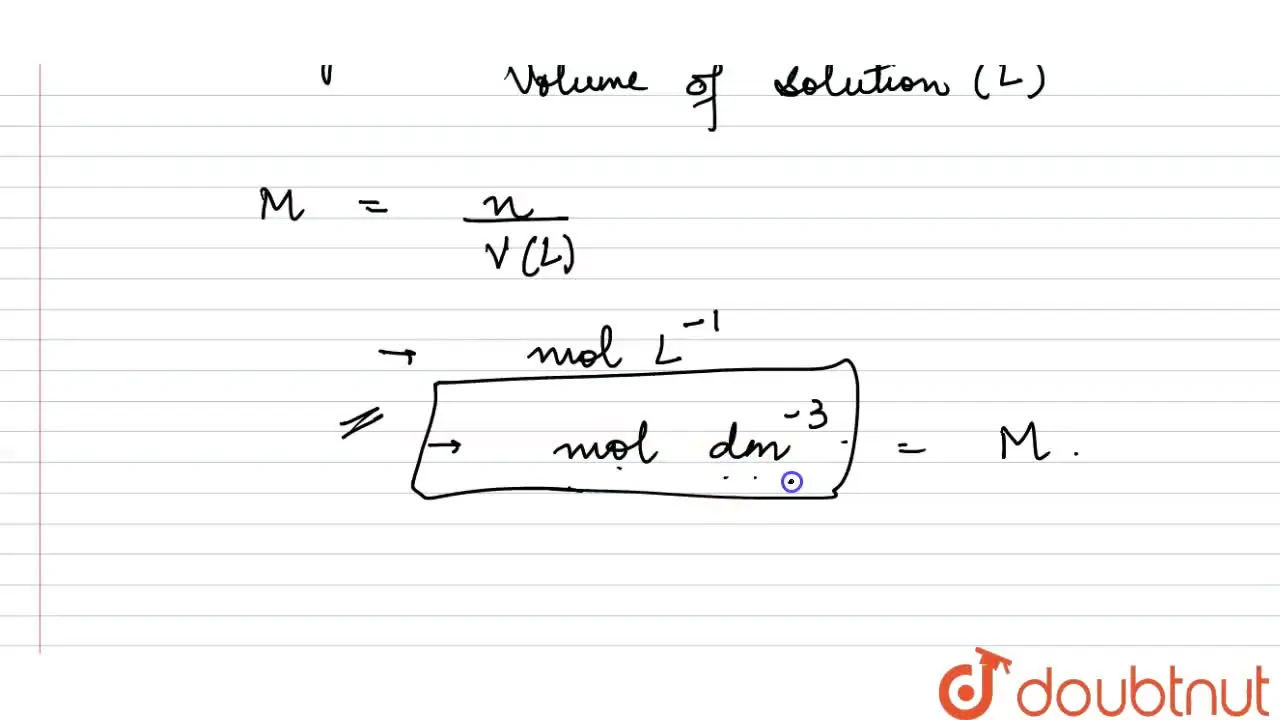 Volume of solution (L)
M = n
V(L)
→ mol L⁻¹
→ mol dm⁻³ = M.
doubtnut